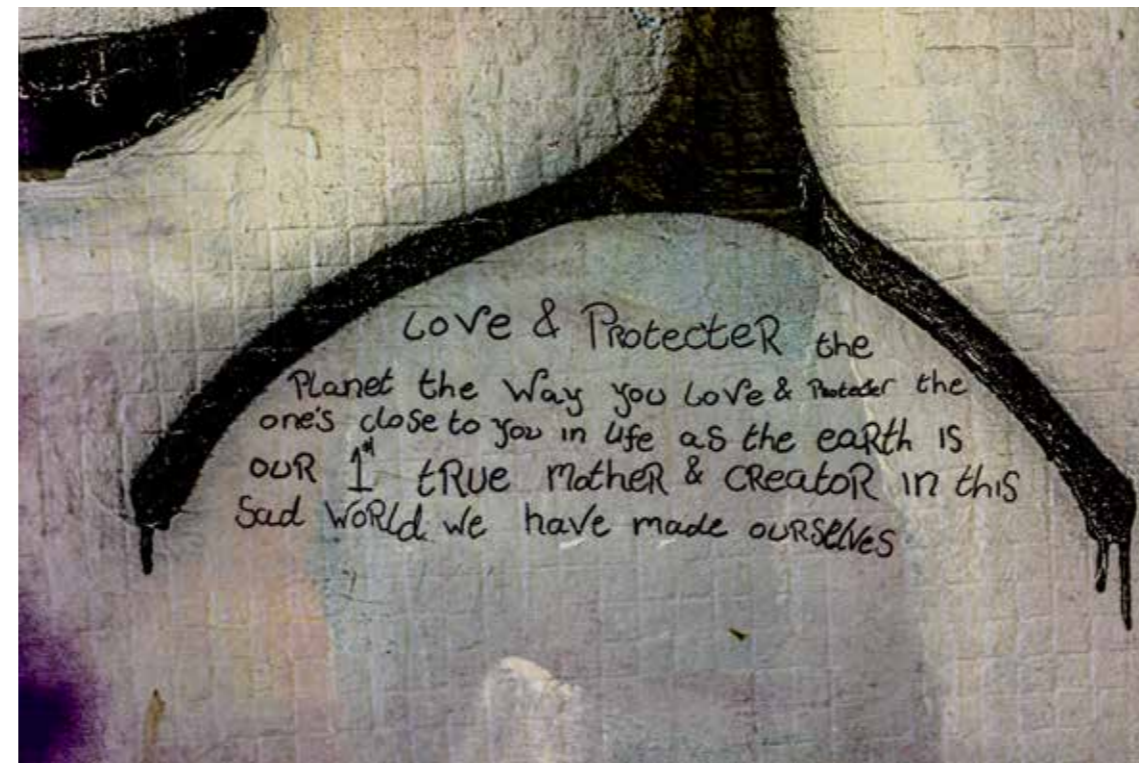 Love & ProtecteR the
Planet the Way you Love & Protecter the
one's close to you in Life as the eaRth is
ouR 1st tRue MotheR & CReatoR in this
Sad WoRld we have made ouRselves